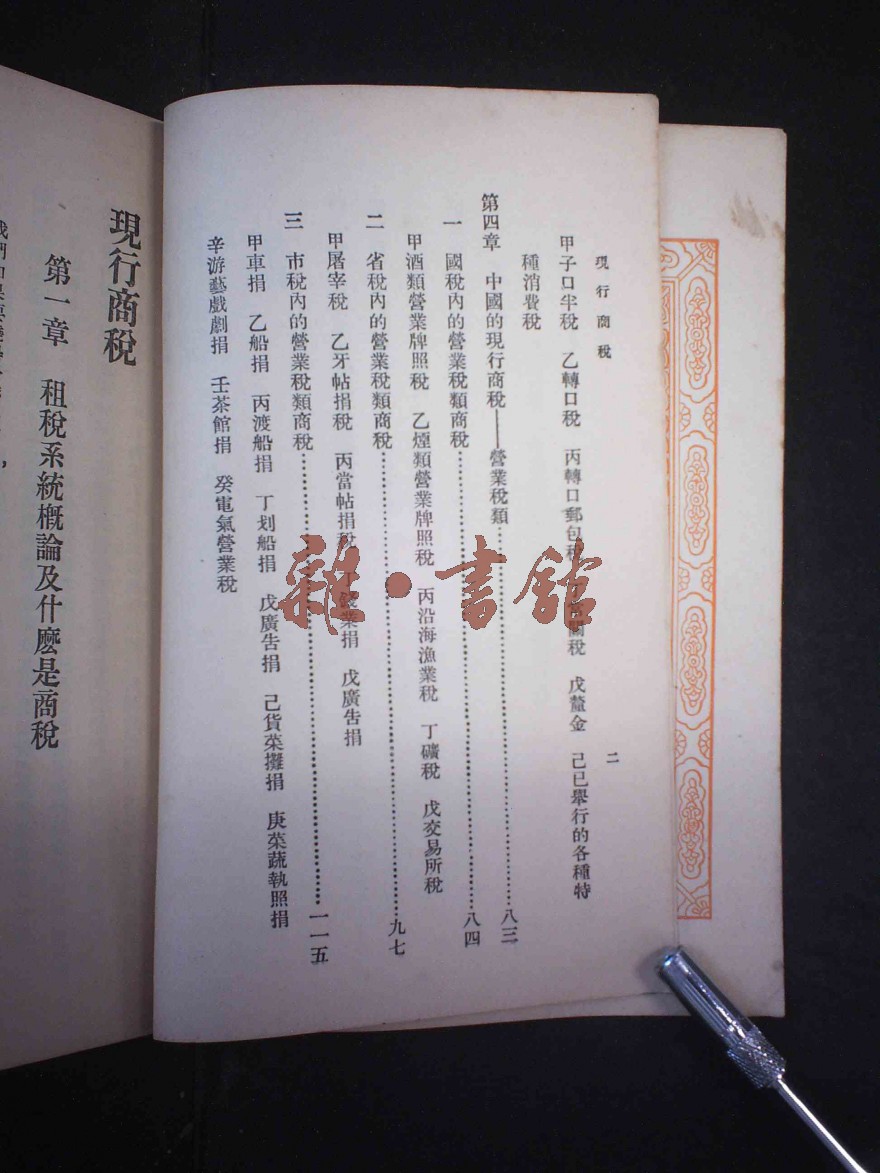 現行商稅
二
甲子口半稅　乙轉口稅　丙轉口郵包稅　常關稅　戊釐金　己已舉行的各種特
種消費稅
第四章　中國的現行商稅——營業稅類……八三
一　國稅內的營業稅類商稅……八四
甲酒類營業牌照稅　乙煙類營業牌照稅　丙沿海漁業稅　丁礦稅　戊交易所稅
二　省稅內的營業稅類商稅……九七
甲屠宰稅　乙牙帖捐稅　丙當帖捐稅　丁錢業捐　戊廣告捐
三　市稅內的營業稅類商稅……一一五
甲車捐　乙船捐　丙渡船捐　丁划船捐　戊廣告捐　己貨菜攤捐　庚菜蔬執照捐
辛游藝戲劇捐　壬茶館捐　癸電氣營業稅
現行商稅
第一章　租稅系統概論及什麽是商稅
雜·書館